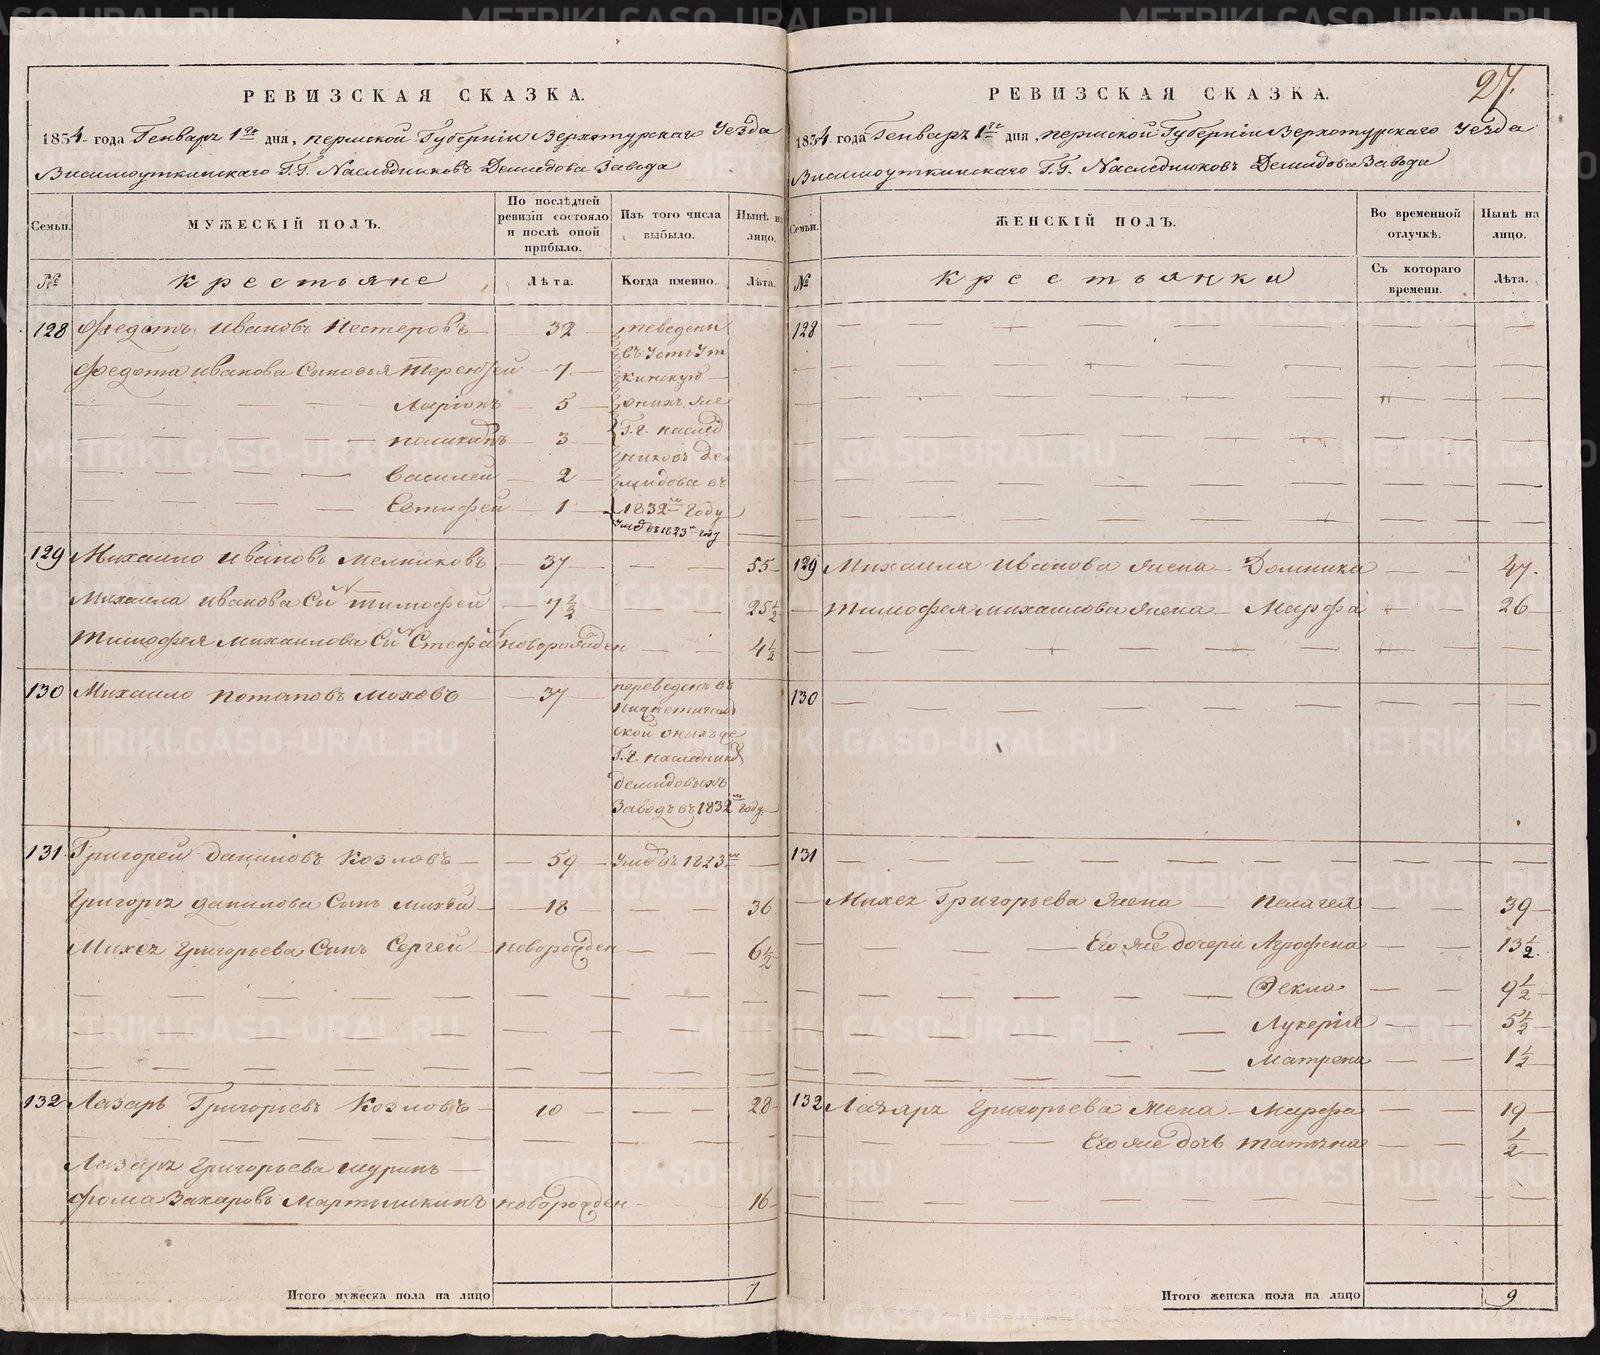 РЕВИЗСКАЯ СКАЗКА.
1834. года Генваря 1го дня, Пермской Губернiи Верхотурскаго Уезда
Висимоуткинскаго Г.Г. Наследниковъ Демидова Завода
Семьи.
МУЖЕСКIЙ ПОЛЪ.
По последней ревизiи состояло и послѣ оной прибыло.
Изъ того числа выбыло.
Нынѣ на лицо.
№
Крестьяне
Лѣта.
Когда именно.
Лѣта.
128 Федотъ Ивановъ Нестеровъ 32 
Федота Иванова Сыновья Терентей 7
Ларiонъ 5
Поликапъ 3
Василей 2
Естифей 1
въ 1832м году
Умѣ въ 1823м году
129 Михаило Ивановъ Мелниковъ 37 55
Михаила Иванова Сы Тимофей 7½ 25½
Тимофея Михаилова Сы Стефа новорожден 4½
130 Михаило Потаповъ Моховъ 37 переведенъ въ
Г.г. наследников
Демидовыхъ
Заводъ въ 1832м году
131 Григорей Даниловъ Козловъ 59 Умѣ въ 1823м
Григорья Данилова Сынъ Михѣй 18 36
Михея Григорьева Сынъ Сергей новорожден 6½
132 Лазарь Григорьевъ Козловъ 10 28
Лазаря Григорьева шуринъ
Фома Захаровъ Мартюшкинъ новорожден 16
Итого мужеска пола на лицо 7
27.
РЕВИЗСКАЯ СКАЗКА.
1834. года Генваря 1го дня, Пермской Губернiи Верхотурскаго Уезда
Висимоуткинскаго Г.Г. Наследниковъ Демидова Завода
Семьи.
ЖЕНСКIЙ ПОЛЪ.
Во временной отлучкѣ.
Нынѣ на лицо.
№
Крестьянки
Съ котораго времени.
Лѣта.
128
129 Михаила Иванова жена Домника 47.
Тимофея Михаилова жена Марфа 26
130
131
Михея Григорьева жена Пелагея 39
Его же дочери Агрофена 13½
Фекла 9½
Лукерiя 5½
Матрена 1½
132 Лазаря Григорьева жена Марфа 19
Его же дочь Татьяна ½
Итого женска пола на лицо 9
METRIKI.GASO-URAL.RU